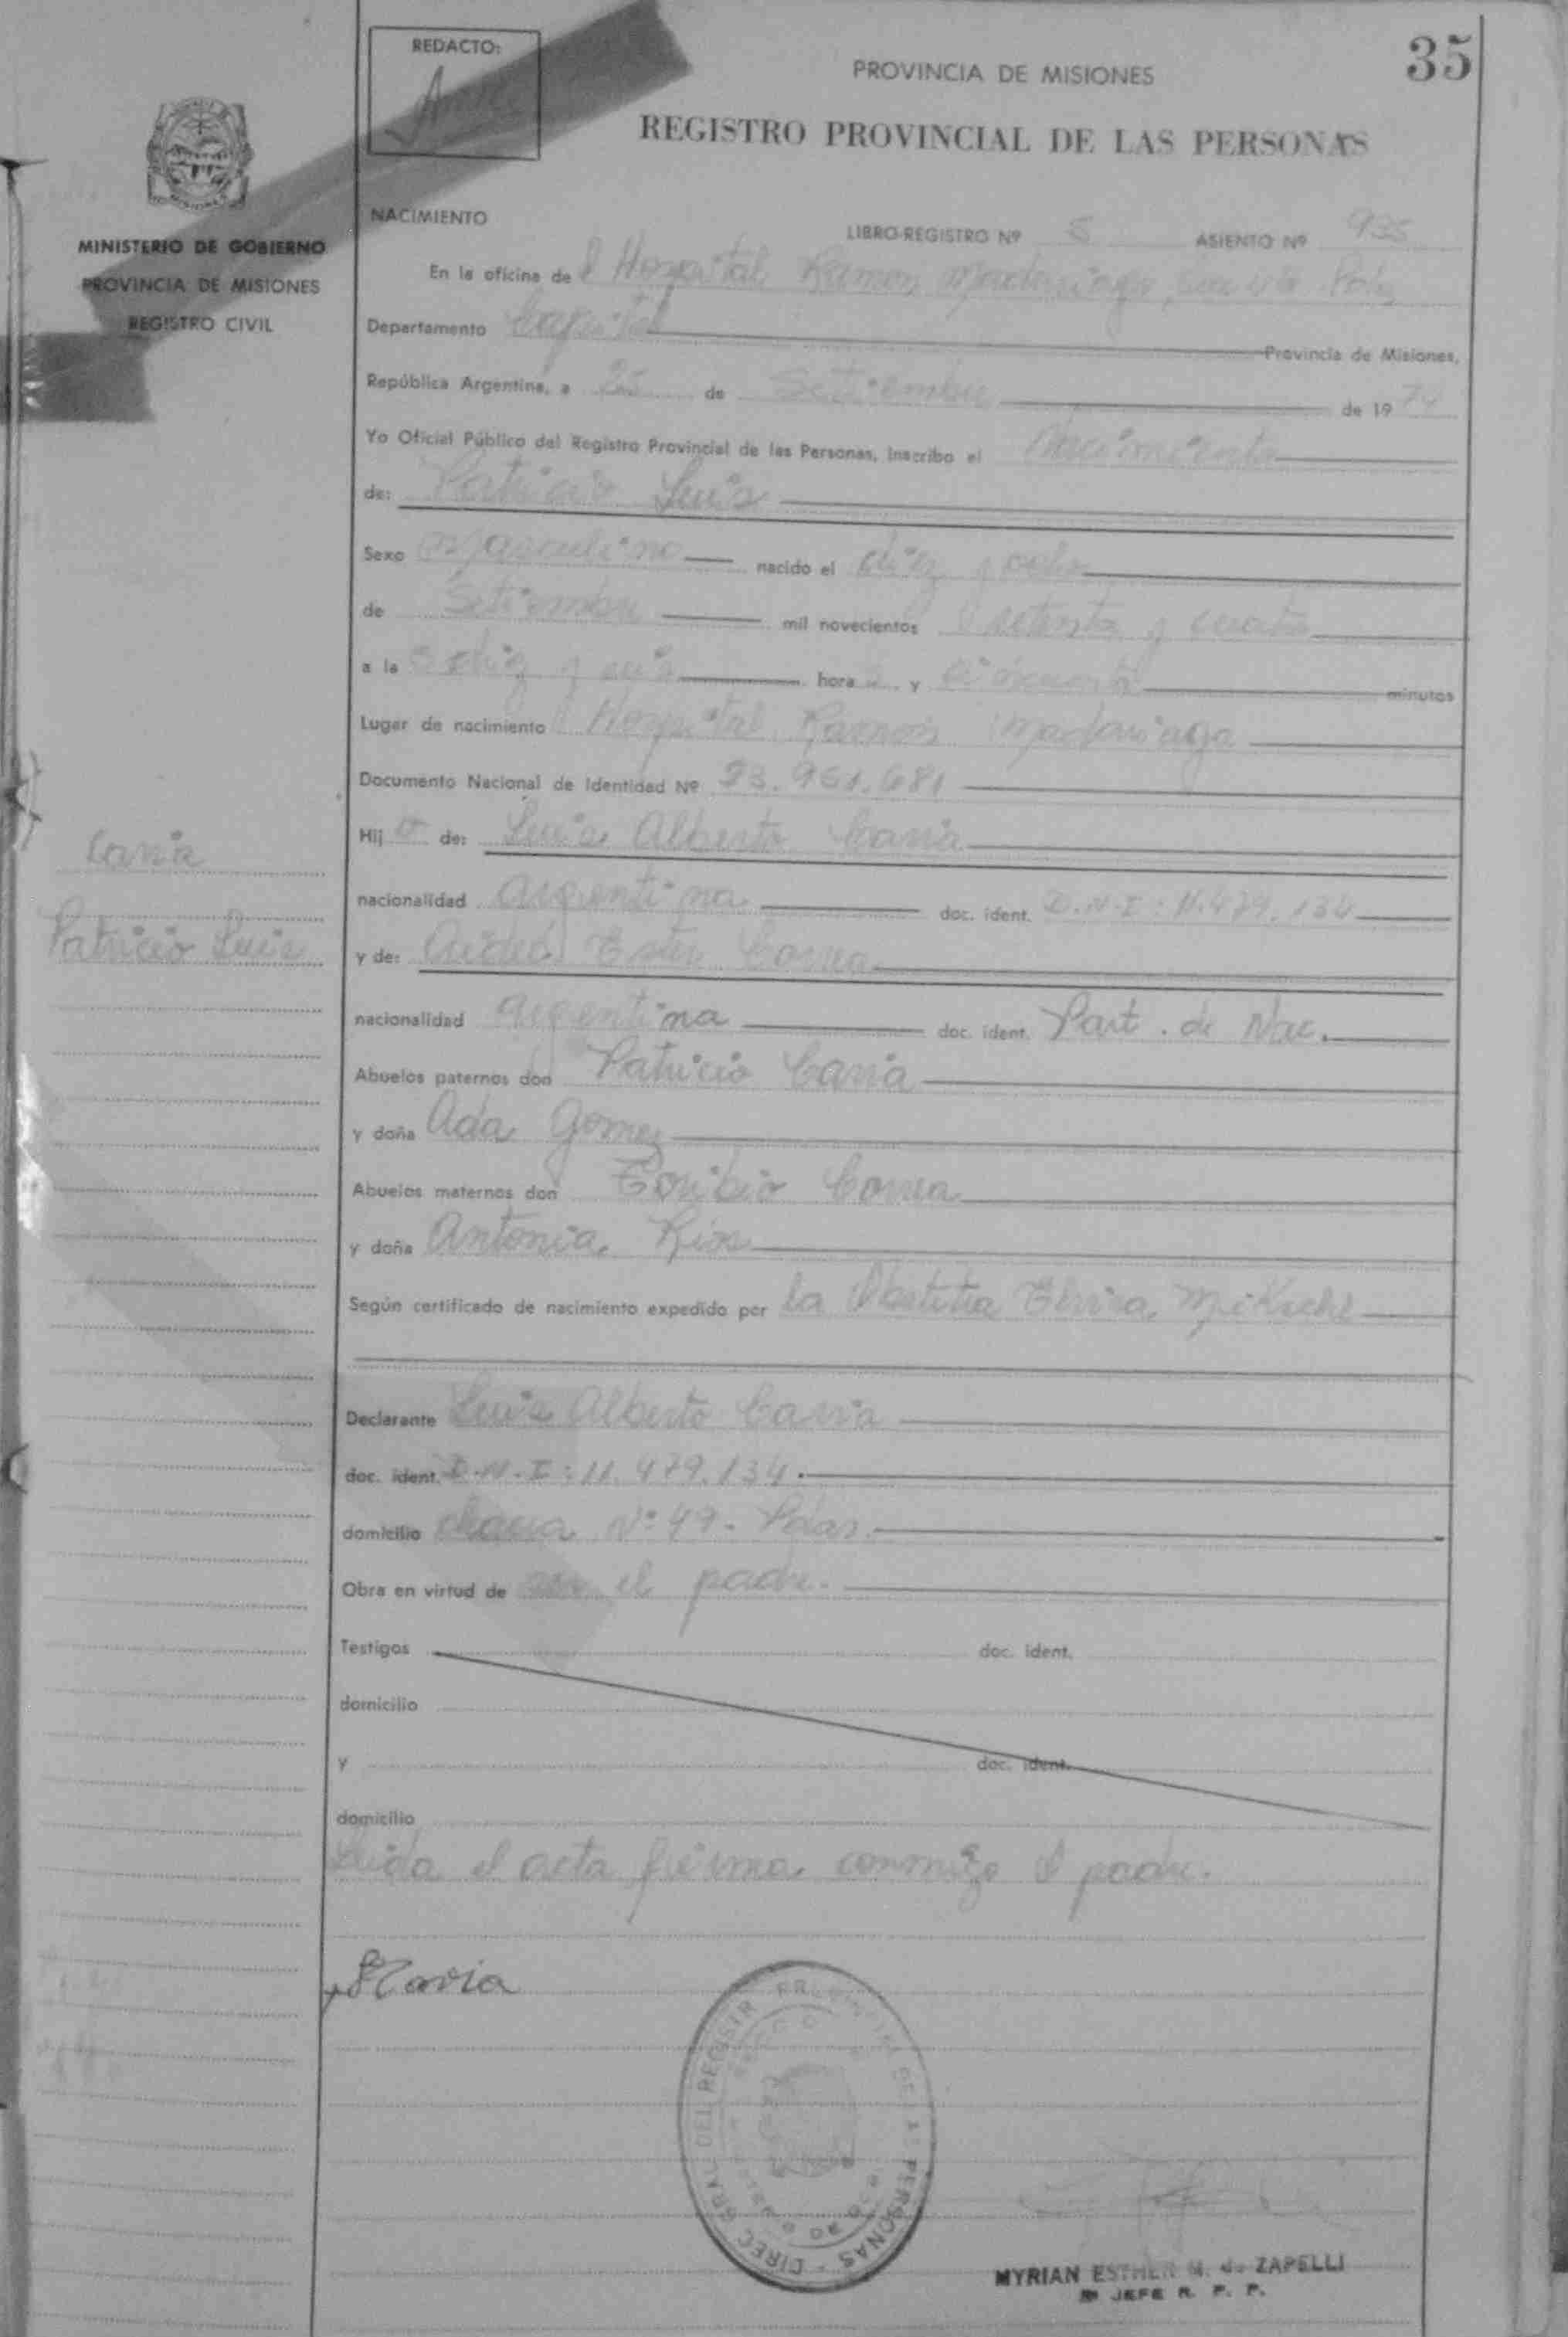 35
REDACTO:
PROVINCIA DE MISIONES
REGISTRO PROVINCIAL DE LAS PERSONAS
MINISTERIO DE GOBIERNO
PROVINCIA DE MISIONES
REGISTRO CIVIL
NACIMIENTO
LIBRO-REGISTRO Nº 5 ASIENTO Nº 935
En la oficina de l Hospital Ramon Madariaga
Departamento Capital Provincia de Misiones,
República Argentina, a 25 de Setiembre de 1974
Yo Oficial Público del Registro Provincial de las Personas, inscribo el Nacimiento
de: Patricio Luis
Sexo Masculino nacido el diez y ocho
de Setiembre mil novecientos setenta y cuatro
a la s diez y seis hora s y cincuenta minutos
Lugar de nacimiento Hospital Ramon Madariaga
Documento Nacional de Identidad Nº 23.961.681
Hij o de: Luis Alberto Caria
nacionalidad argentina doc. ident. D.N.I: 11.479.134
y de: Ester Correa
nacionalidad argentina doc. ident. Part. de Nac.
Abuelos paternos don Patricio Caria
y doña Ada Gomez
Abuelos maternos don Toribio Correa
y doña Antonia Rios
Según certificado de nacimiento expedido por la Obstetra Elvira
Declarante Luis Alberto Caria
doc. ident. D.N.I: 11.479.134.
domicilio chacra Nº 49. Pdas.
Obra en virtud de el padre.
Testigos doc. ident.
domicilio
y doc. ident.
domicilio
Leida el acta firma conmigo el padre.
Caria
Patricio Luis
DIREC. GRAL. DEL REGISTR PERSONAS
MYRIAN ESTHER M. de ZAPELLI
JEFE R. P. P.